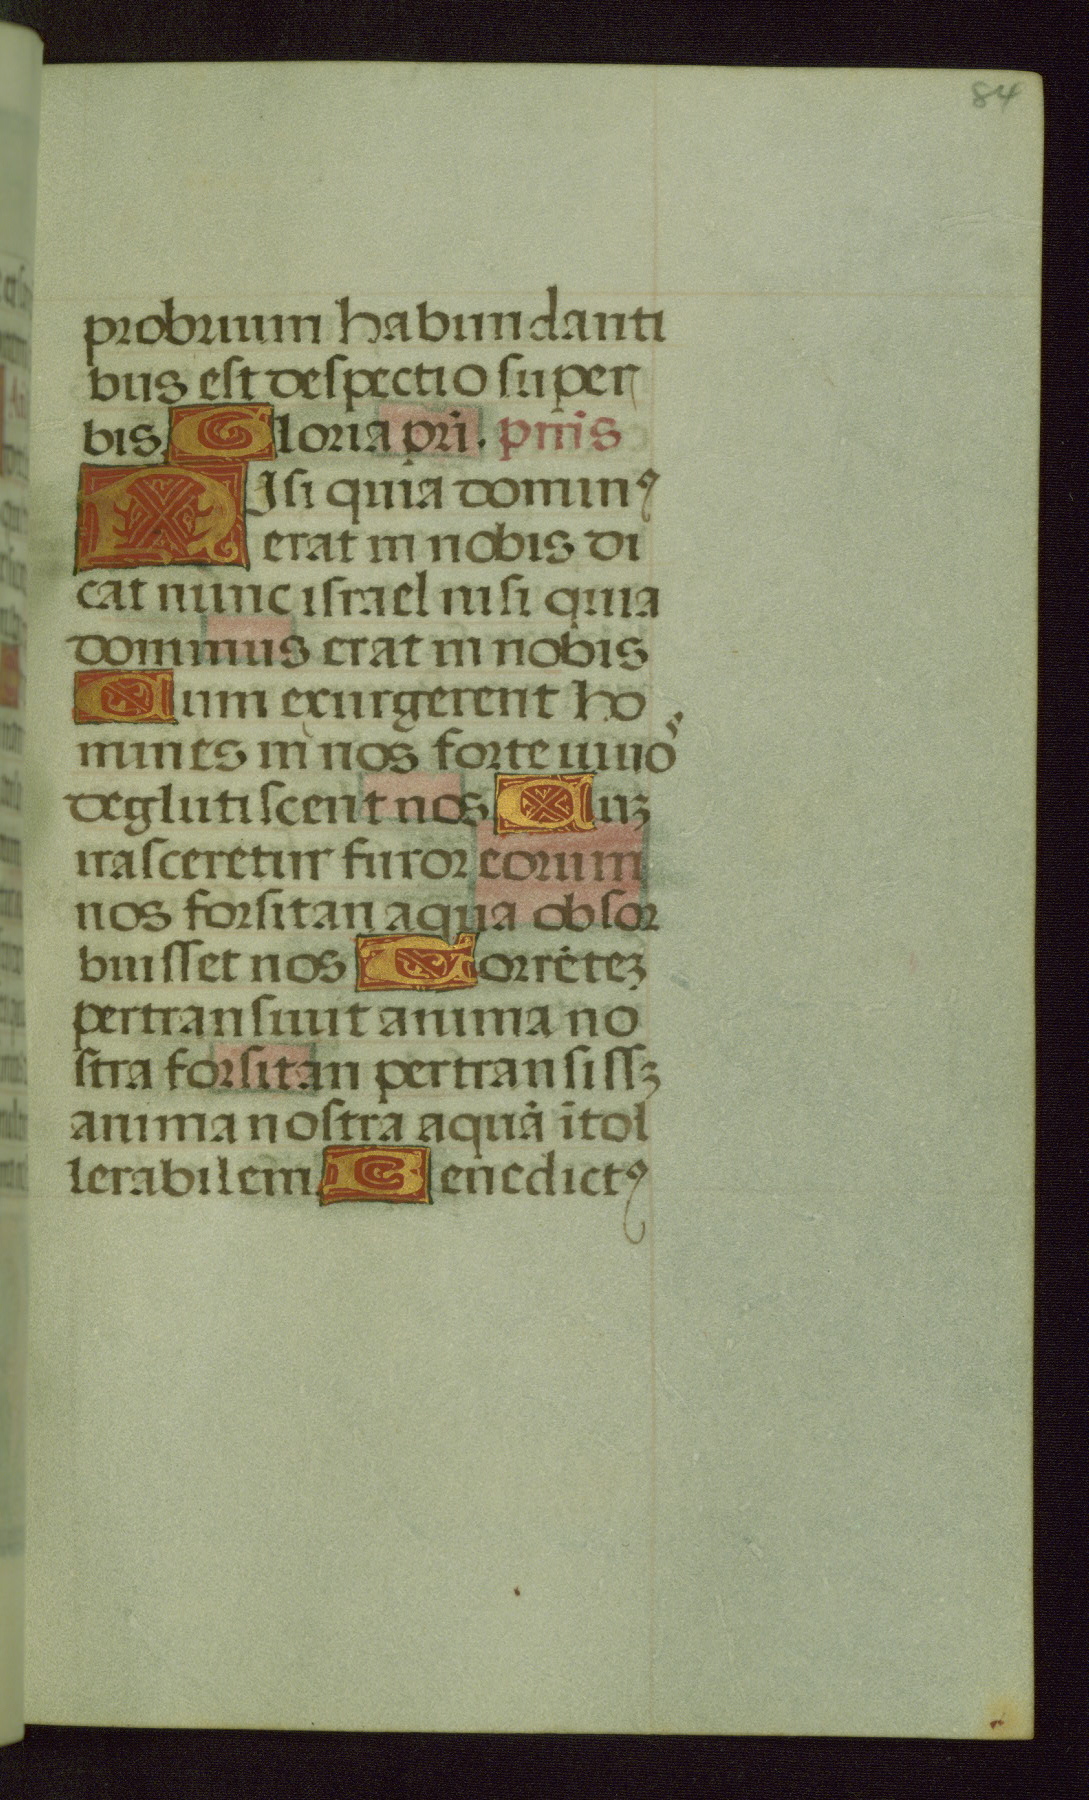 84
probrium habundanti
bus est despectio super
bis Gloria pri. psm̄s
Nisi quia dominꝰ
erat in nobis di
cat nunc israel nisi quia
dominus erat in nobis
Cum exurgerent ho
mines in nos forte uiuos
deglutiscent nos Cuȝ
irasceretur furor eorum
nos forsitan aqua obsor
buisset nos Torrēteȝ
pertransiuit anima no
stra forsitan pertransissȝ
anima nostra aquā ītol
lerabilem Benedictꝰ